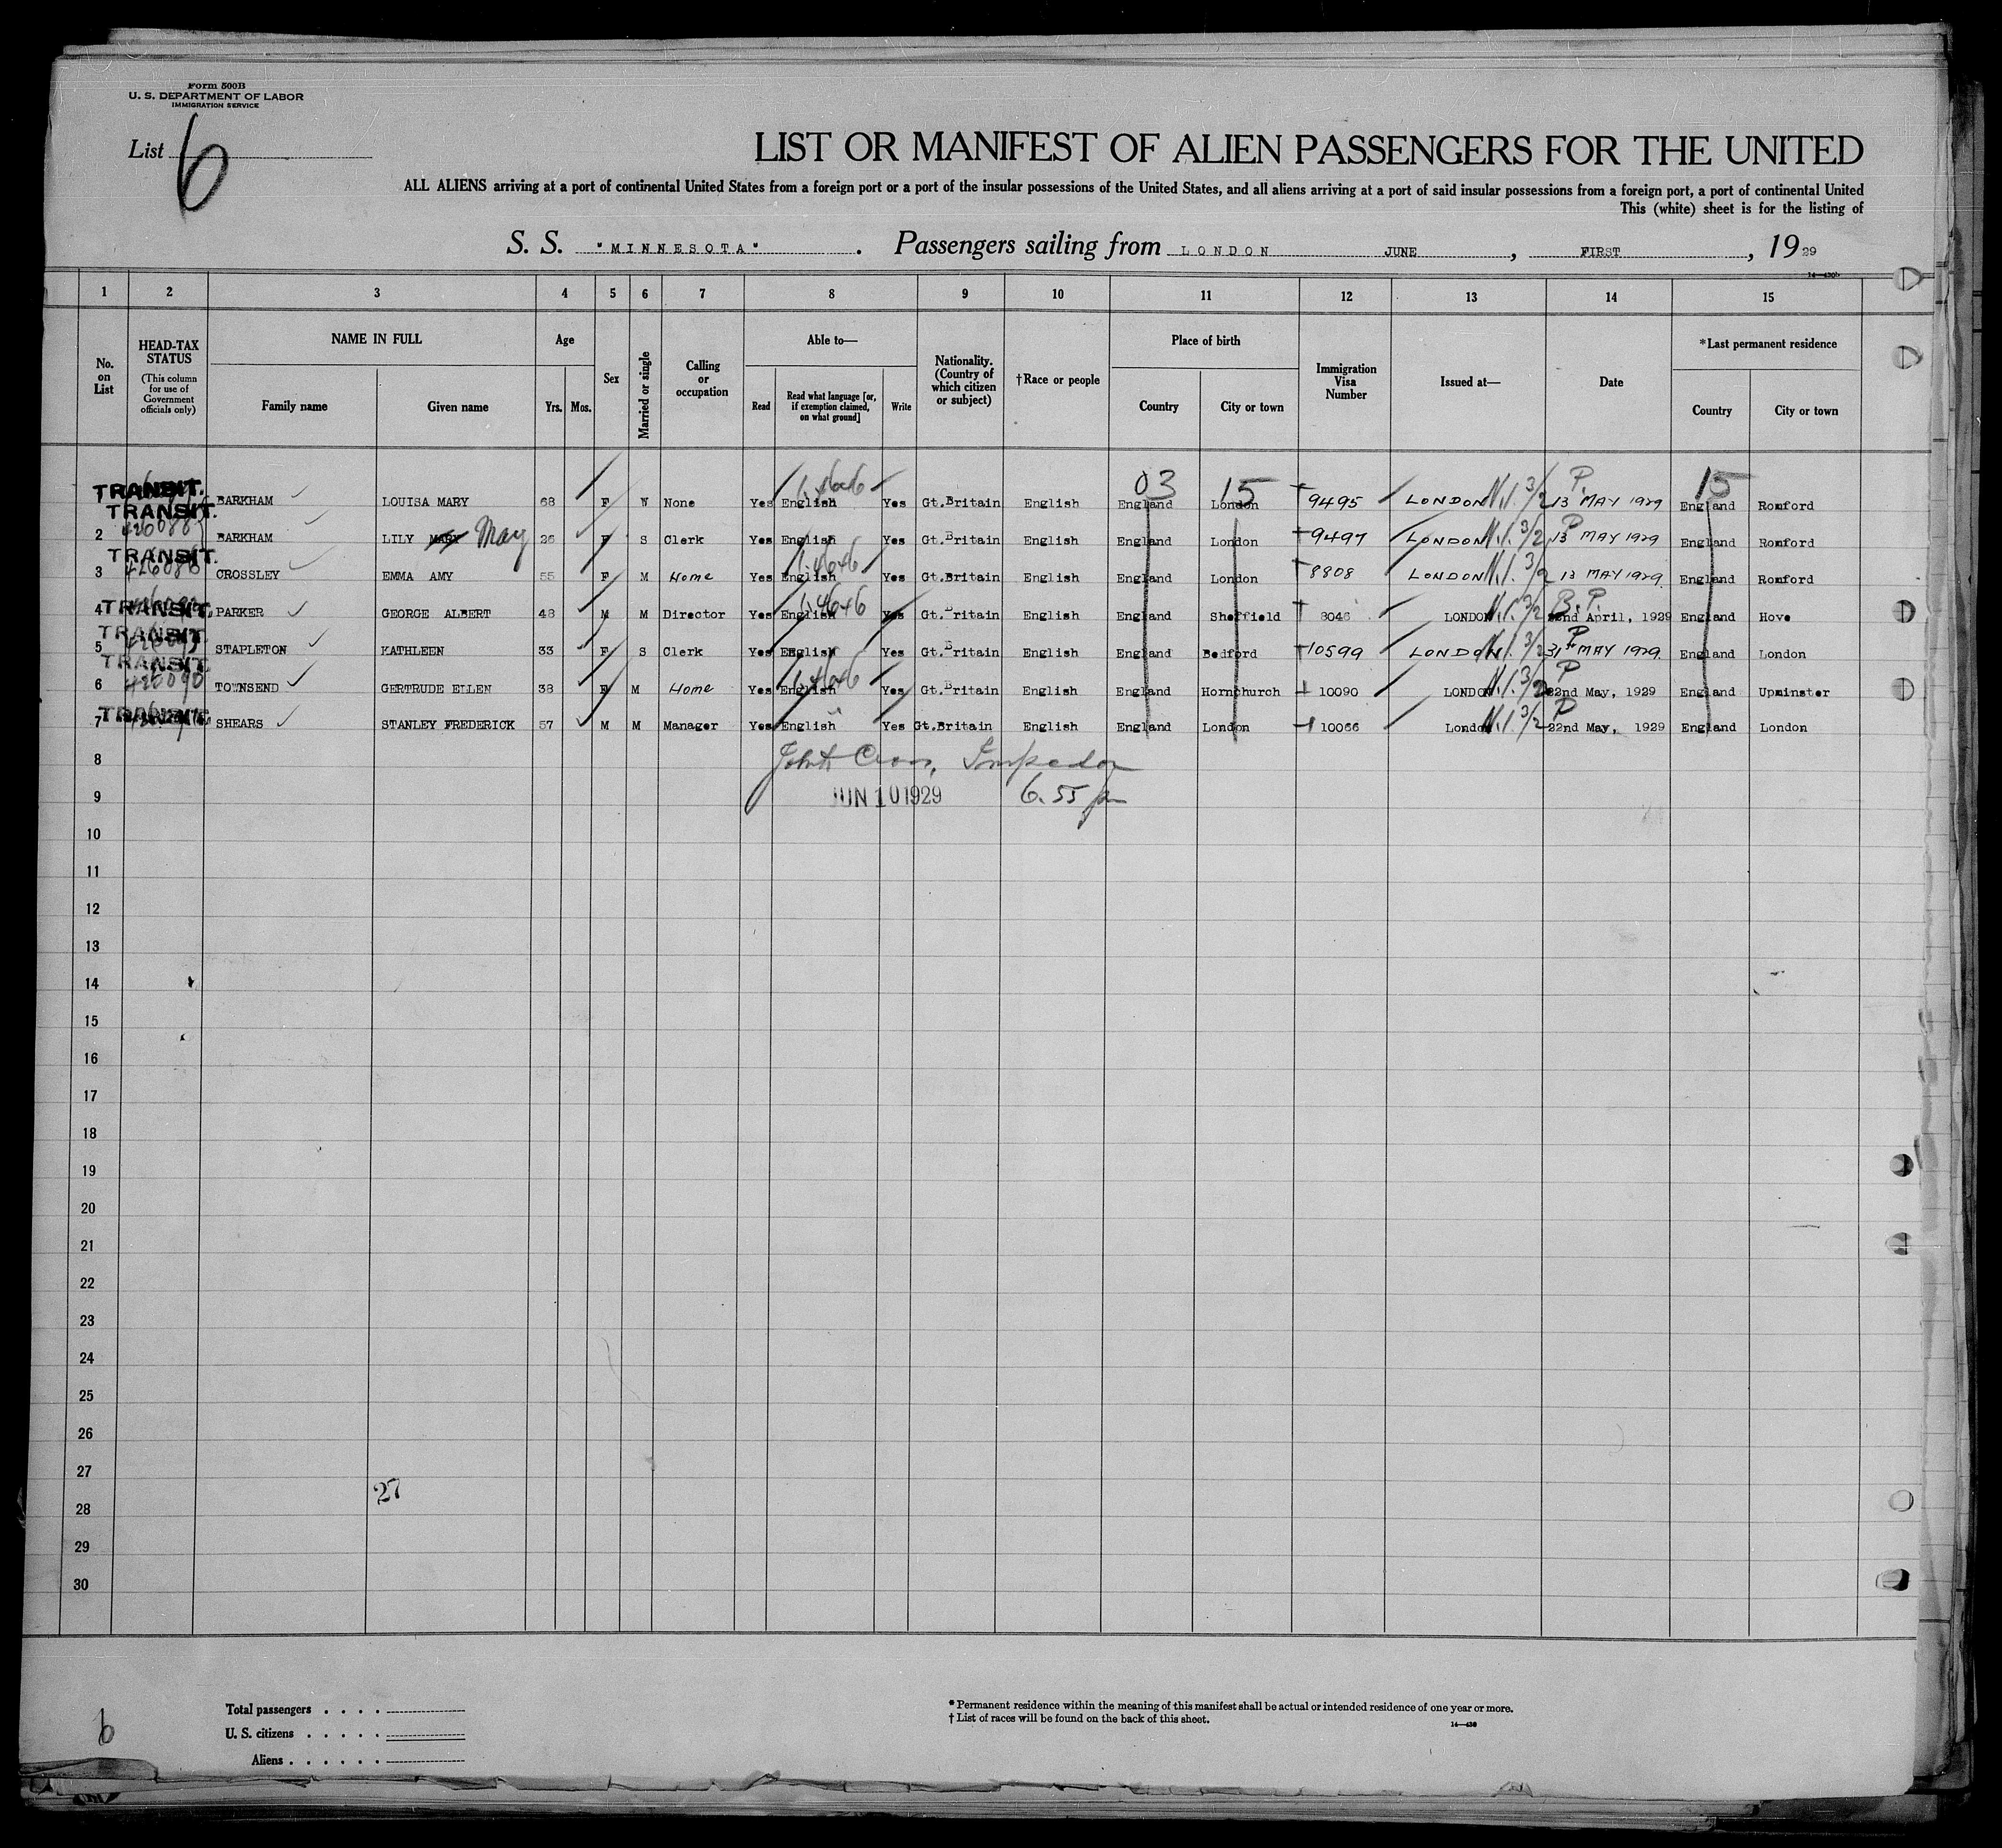 Form 500B
U. S. DEPARTMENT OF LABOR
IMMIGRATION SERVICE
List 6
LIST OR MANIFEST OF ALIEN PASSENGERS FOR THE UNITED
ALL ALIENS arriving at a port of continental United States from a foreign port or a port of the insular possessions of the United States, and all aliens arriving at a port of said insular possessions from a foreign port, a port of continental United
This (white) sheet is for the listing of
S. S. "MINNESOTA". Passengers sailing from LONDON JUNE, FIRST, 1929
1 2 3 4 5 6 7 8 9 10 11 12 13 14 15
No. on List
HEAD-TAX STATUS (This column for use of Government officials only)
NAME IN FULL
Family name Given name
Age
Yrs. Mos.
Sex
Married or single
Calling or occupation
Able to—
Read Read what language [or, if exemption claimed, on what ground] Write
Nationality. (Country of which citizen or subject)
†Race or people
Place of birth
Country City or town
Immigration Visa Number
Issued at—
Date
*Last permanent residence
Country City or town
03 15 15
TRANSIT. BARKHAM LOUISA MARY 68 F W None Yes English Yes Gt.Britain English England London 9495 LONDON 13 MAY 1929 England Romford
TRANSIT.
2 BARKHAM LILY MARY May 26 F S Clerk Yes English Yes Gt.Britain English England London 9497 LONDON 13 MAY 1929 England Romford
TRANSIT.
3 CROSSLEY EMMA AMY 55 F M Home Yes English Yes Gt.Britain English England London 8808 LONDON 13 MAY 1929 England Romford
4 TRANSIT. PARKER GEORGE ALBERT 48 M M Director Yes English Yes Gt.Britain English England Sheffield 8046 LONDON 22nd April, 1929 England Hove
TRANSIT.
5 STAPLETON KATHLEEN 33 F S Clerk Yes English Yes Gt.Britain English England Bedford 10599 LONDON 31st MAY 1929 England London
TRANSIT.
6 TOWNSEND GERTRUDE ELLEN 38 F M Home Yes English Yes Gt.Britain English England Hornchurch 10090 LONDON 22nd May, 1929 England Upminster
7 TRANSIT. SHEARS STANLEY FREDERICK 57 M M Manager Yes English Yes Gt.Britain English England London 10066 London 22nd May, 1929 England London
8
9 JUN 10 1929 6.55 pm
10
11
12
13
14
15
16
17
18
19
20
21
22
23
24
25
26
27
27
28
29
30
6
Total passengers
U. S. citizens
Aliens
* Permanent residence within the meaning of this manifest shall be actual or intended residence of one year or more.
† List of races will be found on the back of this sheet.